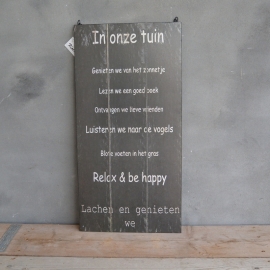 In onze tuin
Genieten we van het zonnetje
Lezen we een goed boek
Ontvangen we lieve vrienden
Luisteren we naar de vogels
Blote voeten in het gras
Relax & be happy
Lachen en genieten
we